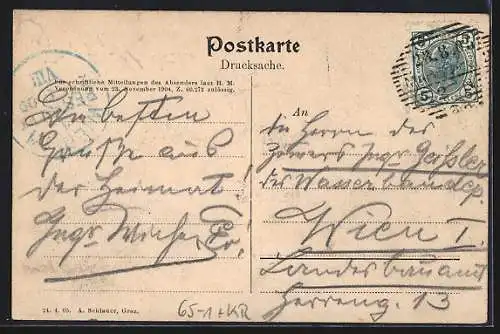 Postkarte
Drucksache.
Für schriftliche Mitteilungen des Absenders laut H. M.
Verordnung vom 23. November 1904, Z. 60.272 zulässig.
Die besten
Grüße aus
der Heimat!
Ingr
An
die Herren des
Ingr Geißler
des Wasserbaudep.
Wien I.
Landesbauamt
Herreng. 13
24. 4. 05. A. Schlauer, Graz.
65-1+KR
5
5